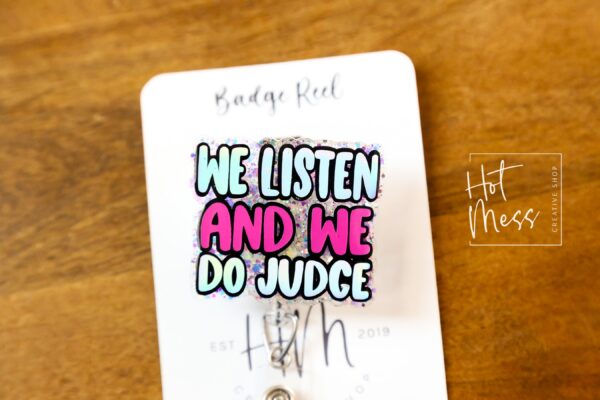 Badge Reel
WE LISTEN
AND WE
DO JUDGE
EST
2019
Hot
Mess
CREATIVE SHOP